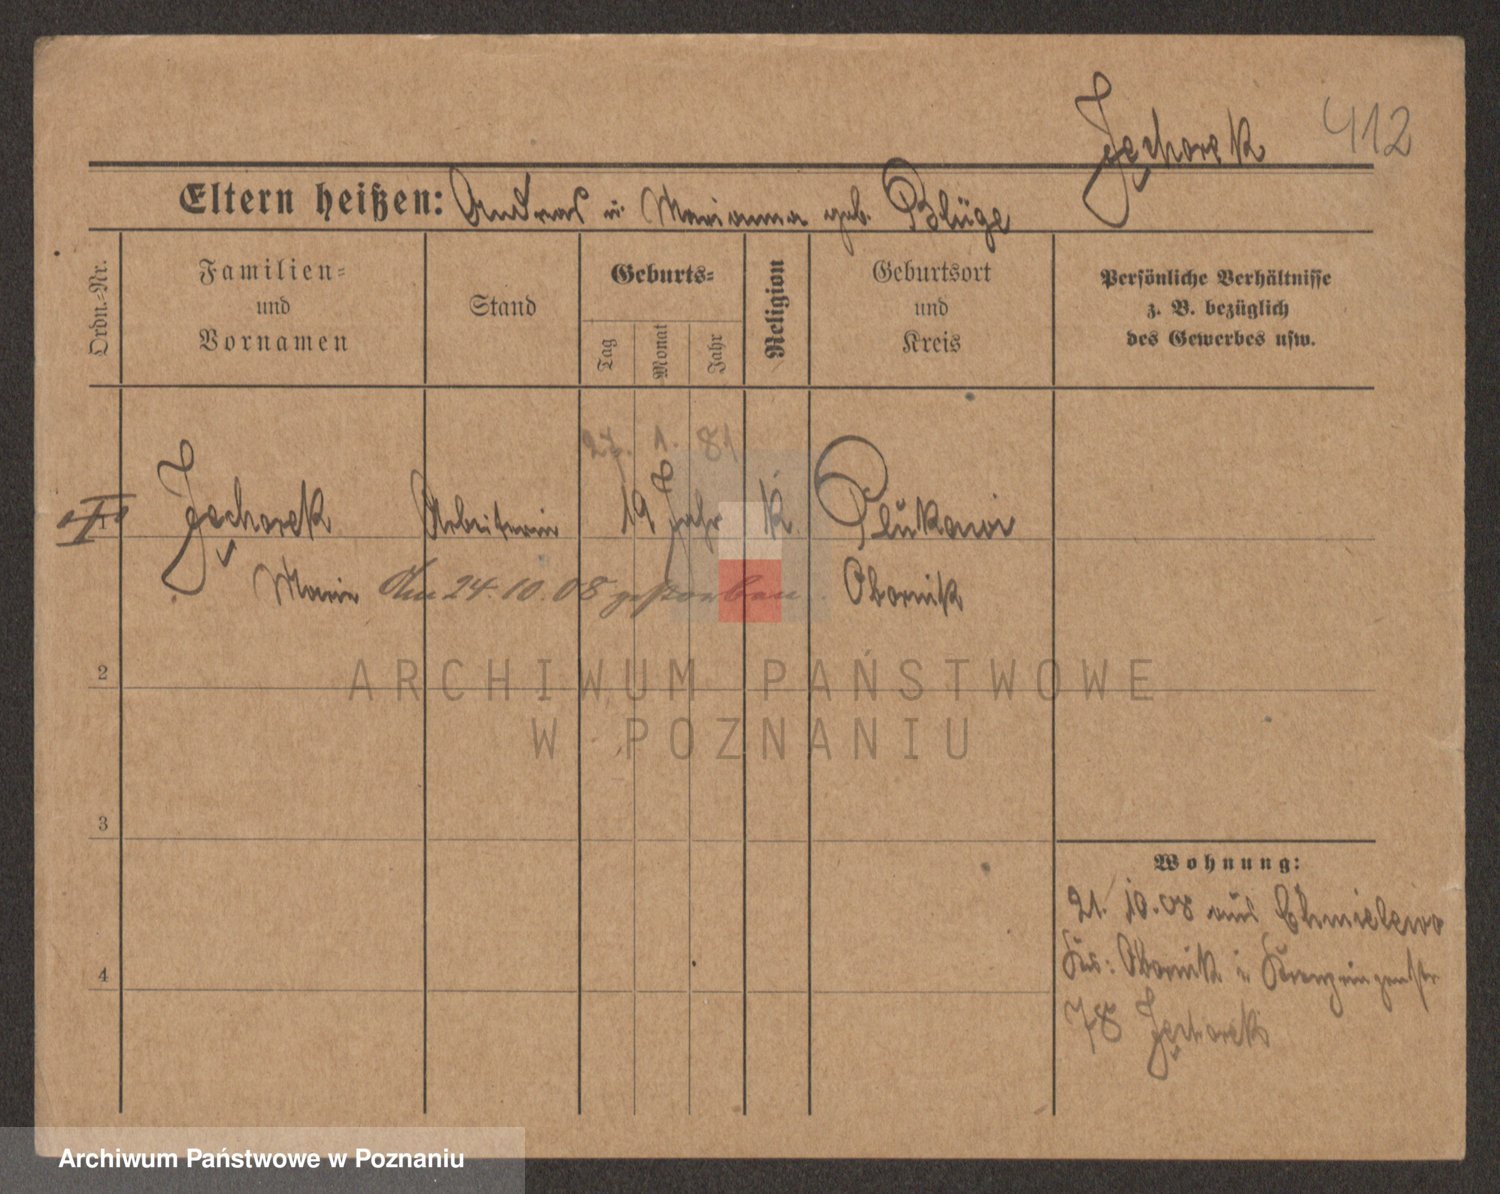 Jęchorek 412
Eltern heißen: Andreas u. Marianna geb. Blüge
Ordn.-Nr.
Familien-
und
Vornamen
Stand
Geburts-
Tag
Monat
Jahr
Religion
Geburtsort
und
Kreis
Persönliche Verhältnisse
z. B. bezüglich
des Gewerbes usw.
27. 1. 81
1 Jęchorek Arbeiterin 19 Jahr k.
Marie Am 24.10.08 gestorben. Obornik
2
ARCHIWUM PAŃSTWOWE
W POZNANIU
3
4
Wohnung:
21. 10. 08 aus Chmielewo
Krs: Obornik
78 Jęchorek
Archiwum Państwowe w Poznaniu